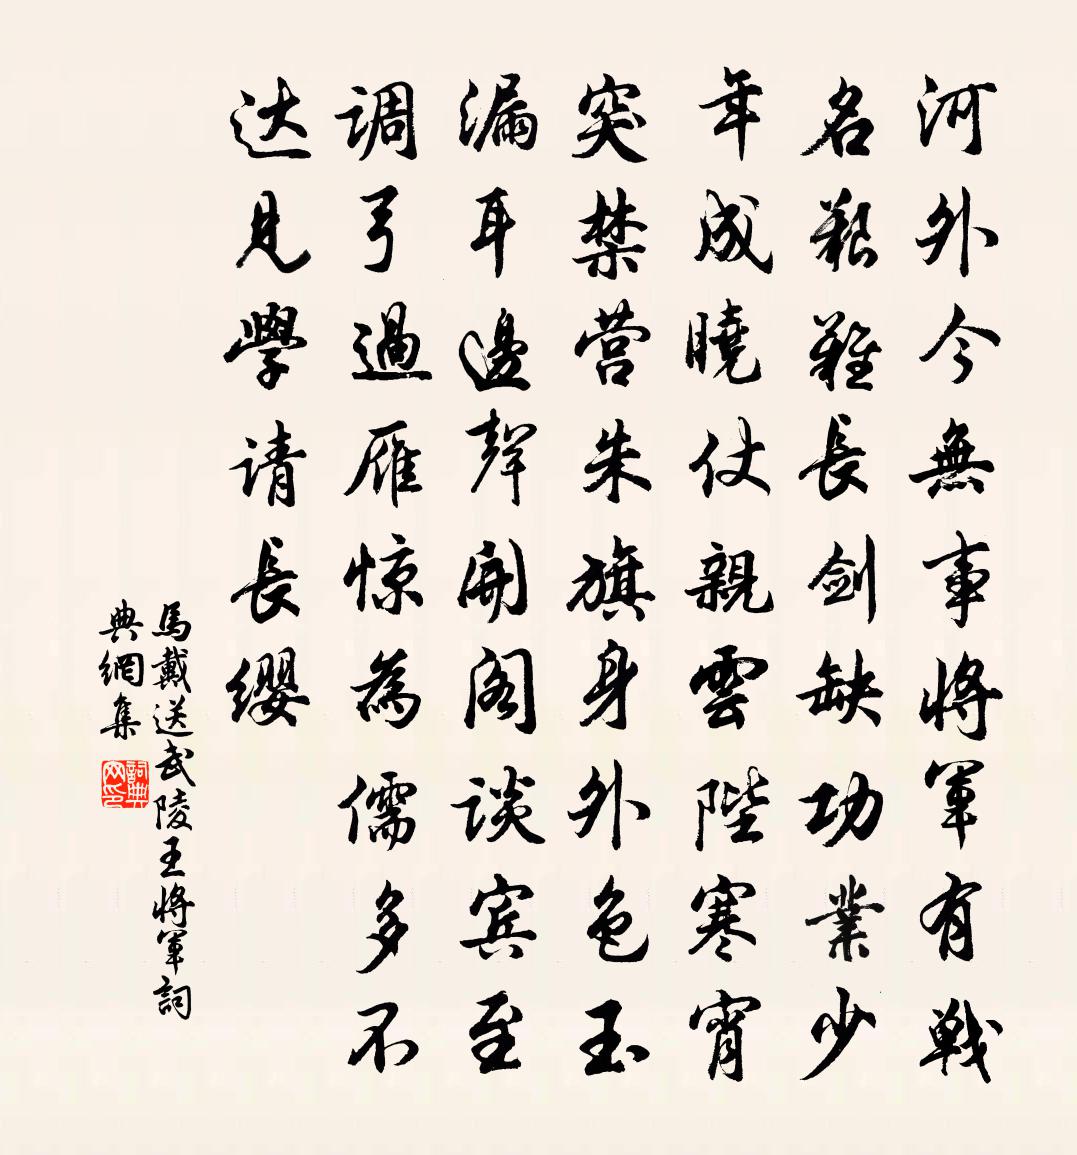 河外今無事將軍有戦
名艱難長剑缺功業少
年成曉仗親雲陛寒宵
突禁营朱旗身外色玉
漏耳邊聲開阁谈宾至
调弓過雁惊為儒多不
达見學请長缨
馬戴送武陵王將軍詞
典網集
詞典
网印